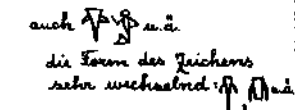 auch u.ä.
die Form des Zeichens
sehr wechselnd: u.ä.